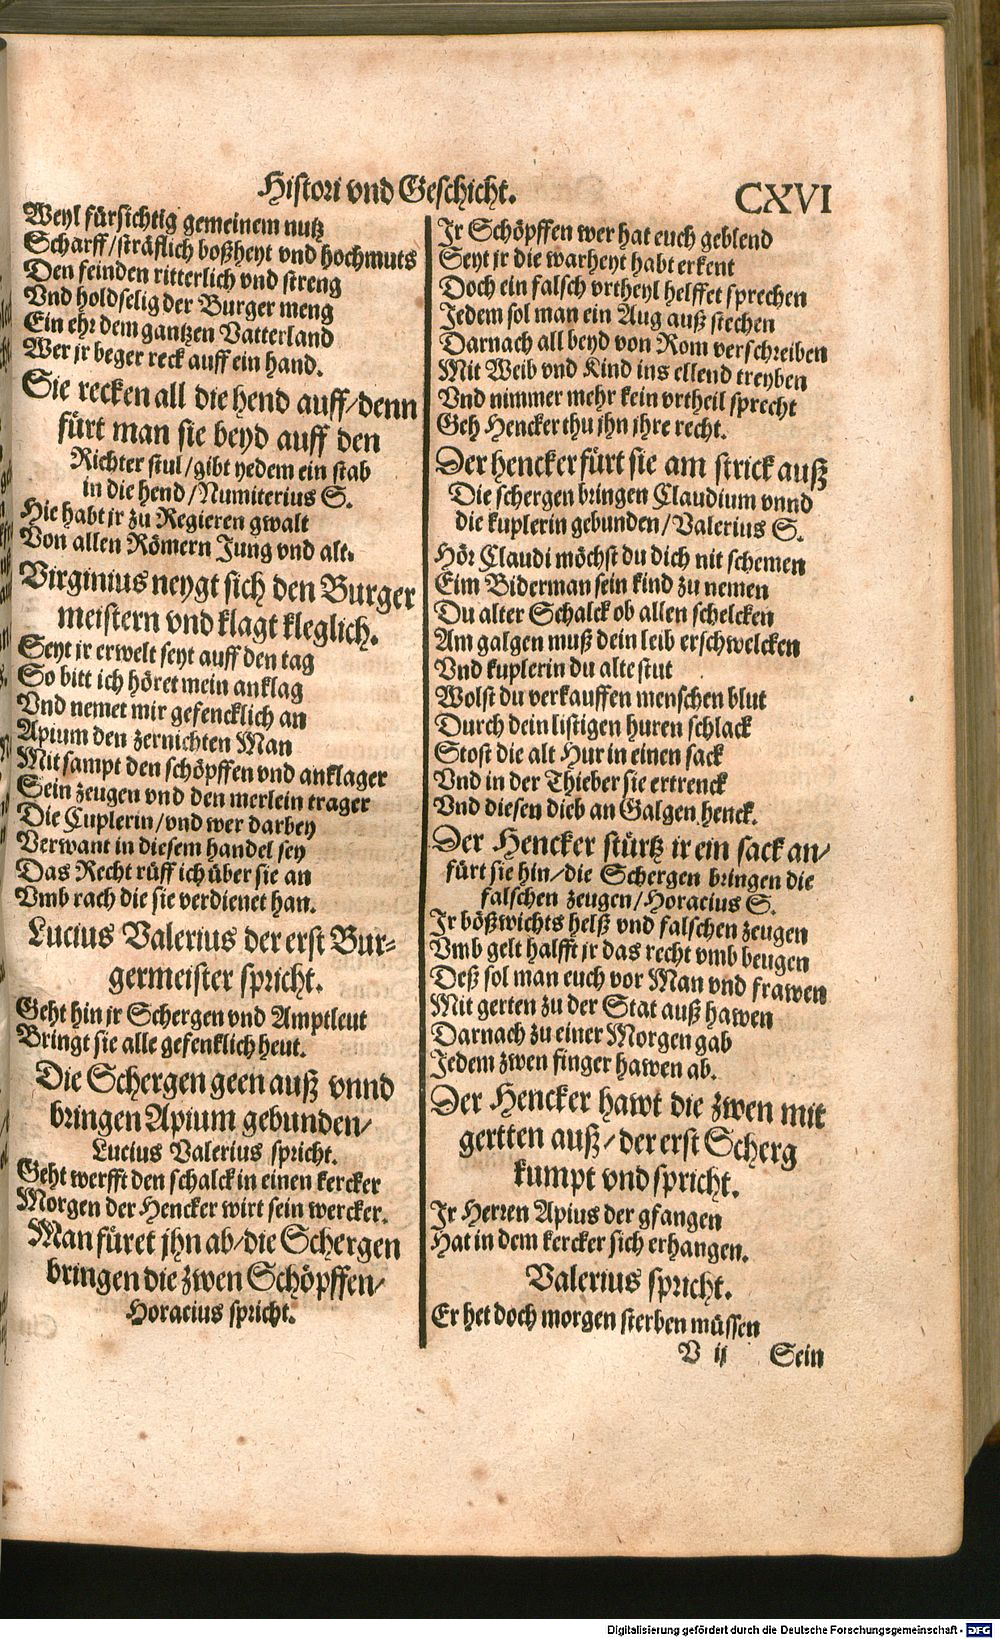 Histori vnd Geschicht.
CXVI
Weyl fürsichtig gemeinem nutz
Scharff/sträflich boßheyt vnd hochmuts
Den feinden ritterlich vnd streng
Vnd holdselig der Burger meng
Ein ehr dem gantzen Vatterland
Wer jr beger reck auff ein hand.
Sie recken all die hend auff/denn
fürt man sie beyd auff den
Richter stul/gibt yedem ein stab
in die hend/Numiterius S.
Hie habt jr zu Regieren gwalt
Von allen Römern Jung vnd alt.
Virginius neygt sich den Burger
meistern vnd klagt kleglich.
Seyt jr erwelt seyt auff den tag
So bitt ich höret mein anklag
Vnd nemet mir gefencklich an
Apium den zernichten Man
Mit sampt den schöpffen vnd anklager
Sein zeugen vnd den merlein trager
Die Cuplerin/vnd wer darbey
Verwant in diesem handel sey
Das Recht rüff ich über sie an
Vmb rach die sie verdienet han.
Lucius Valerius der erst Bur-
germeister spricht.
Geht hin jr Schergen vnd Amptleut
Bringt sie alle gefenklich heut.
Die Schergen geen auß vnnd
bringen Apium gebunden/
Lucius Valerius spricht.
Geht werfft den schalck in einen kercker
Morgen der Hencker wirt sein wercker.
Man füret jhn ab/die Schergen
bringen die zwen Schöpffen/
Horacius spricht.
Jr Schöpffen wer hat euch geblend
Seyt jr die warheyt habt erkent
Doch ein falsch vrtheyl helffet sprechen
Jedem sol man ein Aug auß stechen
Darnach all beyd von Rom verschreiben
Mit Weib vnd Kind ins ellend treyben
Vnd nimmer mehr kein vrtheil sprecht
Geh Hencker thu jhn jhre recht.
Der hencker fürt sie am strick auß
Die schergen bringen Claudium vnnd
die kuplerin gebunden/Valerius S.
Hör Claudi möchst du dich nit schemen
Eim Biderman sein kind zu nemen
Du alter Schalck ob allen schelcken
Am galgen muß dein leib erschwelcken
Vnd kuplerin du alte stut
Wolst du verkauffen menschen blut
Durch dein listigen huren schlack
Stost die alt Hur in einen sack
Vnd in der Thieber sie ertrenck
Vnd diesen dieb an Galgen henck.
Der Hencker stürtz ir ein sack an/
fürt sie hin/die Schergen bringen die
falschen zeugen/Horacius S.
Jr bößwichts helß vnd falschen zeugen
Vmb gelt halfft jr das recht vmb beugen
Deß sol man euch vor Man vnd frawen
Mit gerten zu der Stat auß hawen
Darnach zu einer Morgen gab
Jedem zwen finger hawen ab.
Der Hencker hawt die zwen mit
gertten auß/der erst Scherg
kumpt vnd spricht.
Jr Herren Apius der gfangen
Hat in dem kercker sich erhangen.
Valerius spricht.
Er het doch morgen sterben müssen
V ij Sein
Digitalisierung gefördert durch die Deutsche Forschungsgemeinschaft - DFG